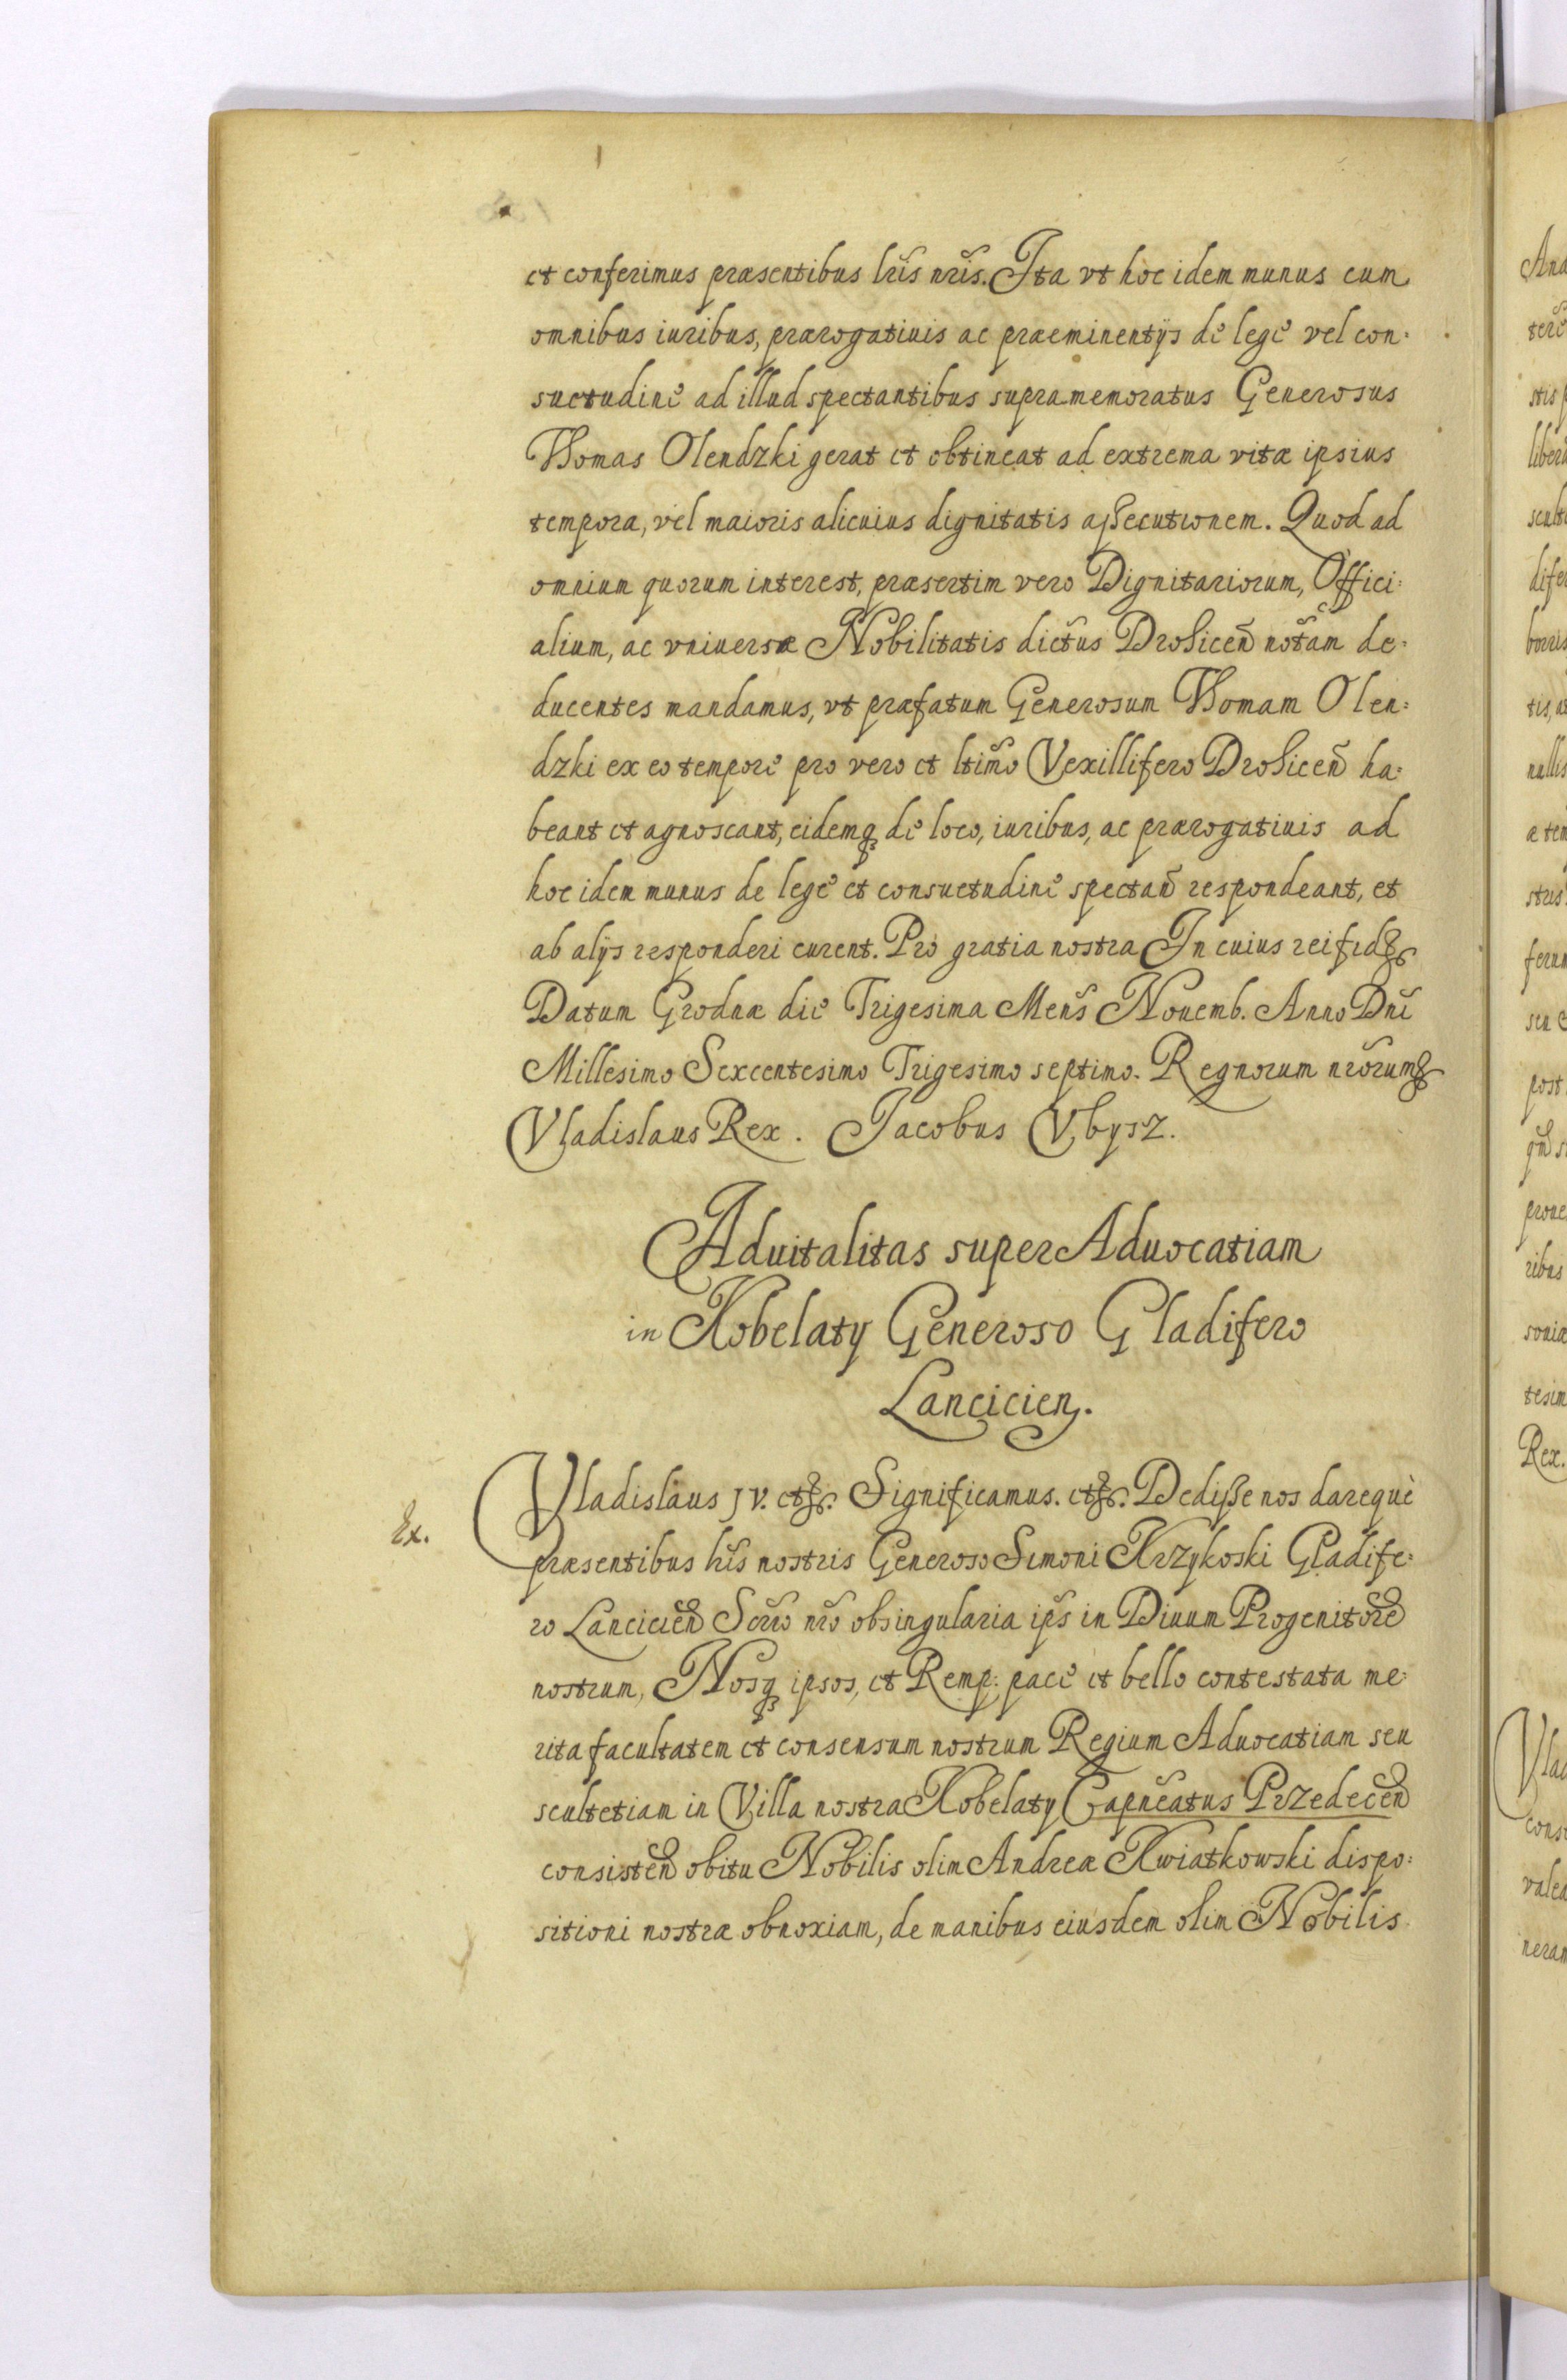 et conferimus præsentibus lris nris. Ita vt hoc idem munus cum
omnibus iuribus, prærogatiuis ac præeminentijs de lege vel con:
suetudine ad illud spectantibus supramemoratus Generosus
Thomas Olendzki gerat et obtineat ad extrema vitæ ipsius
tempora, vel maioris alicuius dignitatis assecutionem. Quod ad
omnium quorum interest, præsertim vero Dignitariorum, Offici:
alium, ac vniuersæ Nobilitatis dictus Drohiceñ notam de:
ducentes mandamus, vt præfatum Generosum Thomam Olen:
dzki ex eo tempore pro vero et ltimo Vexillifero Drohiceñ ha:
beant et agnoscant, eidemq de loco, iuribus, ac prærogatiuis ad
hoc idem munus de lege et consuetudine spectañ respondeant, et
ab alijs responderi curent. Pro gratia nostra In cuius rei fid
Datum Grodnæ die Trigesima Mens Nouemb. Anno Dni
Millesimo Sexcentesimo Trigesimo septimo. Regnorum nrorum
Vladislaus Rex. Jacobus Vbysz.
Aduitalitas super Aduocatiam
in Kobelaty Generoso Gladifero
Lancicien.
Vladislaus IV. etc. Significamus. etc. Dedisse nos dareque
Ex.
præsentibus lris nostris Generoso Simoni Krzykoski Gladife:
ro Lancicieñ Scrro nro ob singularia ips in Diuum Progenitore
nostrum, Nosq ipsos, et Remp: pace et bello contestata me:
rita facultatem et consensum nostrum Regium Aduocatiam seu
scultetiam in Villa nostra Kobelaty Capneatus Przedeceñ
consisteñ obitu Nobilis olim Andreæ Kwiatkowski dispo:
sitioni nostræ obnoxiam, de manibus eiusdem olim Nobilis